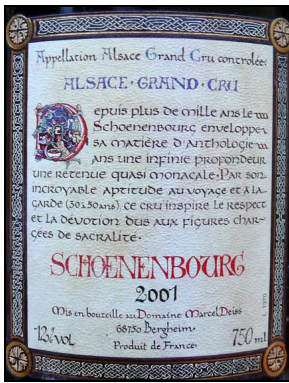 Appellation Alsace Grand Cru controlée
ALSACE · GRAND · CRU
Depuis plus de mille ans le
Schoenenbourg enveloppe
sa matière d'anthologie
ans une infinie profondeur
une retenue quasi monacale. Par son
incroyable aptitude au voyage et à la
garde (30 à 50 ans), ce cru inspire le respect
et la dévotion dus aux figures char-
gées de sacralité.
SCHOENENBOURG
2001
Mis en bouteille au Domaine Marcel Deiss
68750 Bergheim
12%vol Produit de France 750 ml